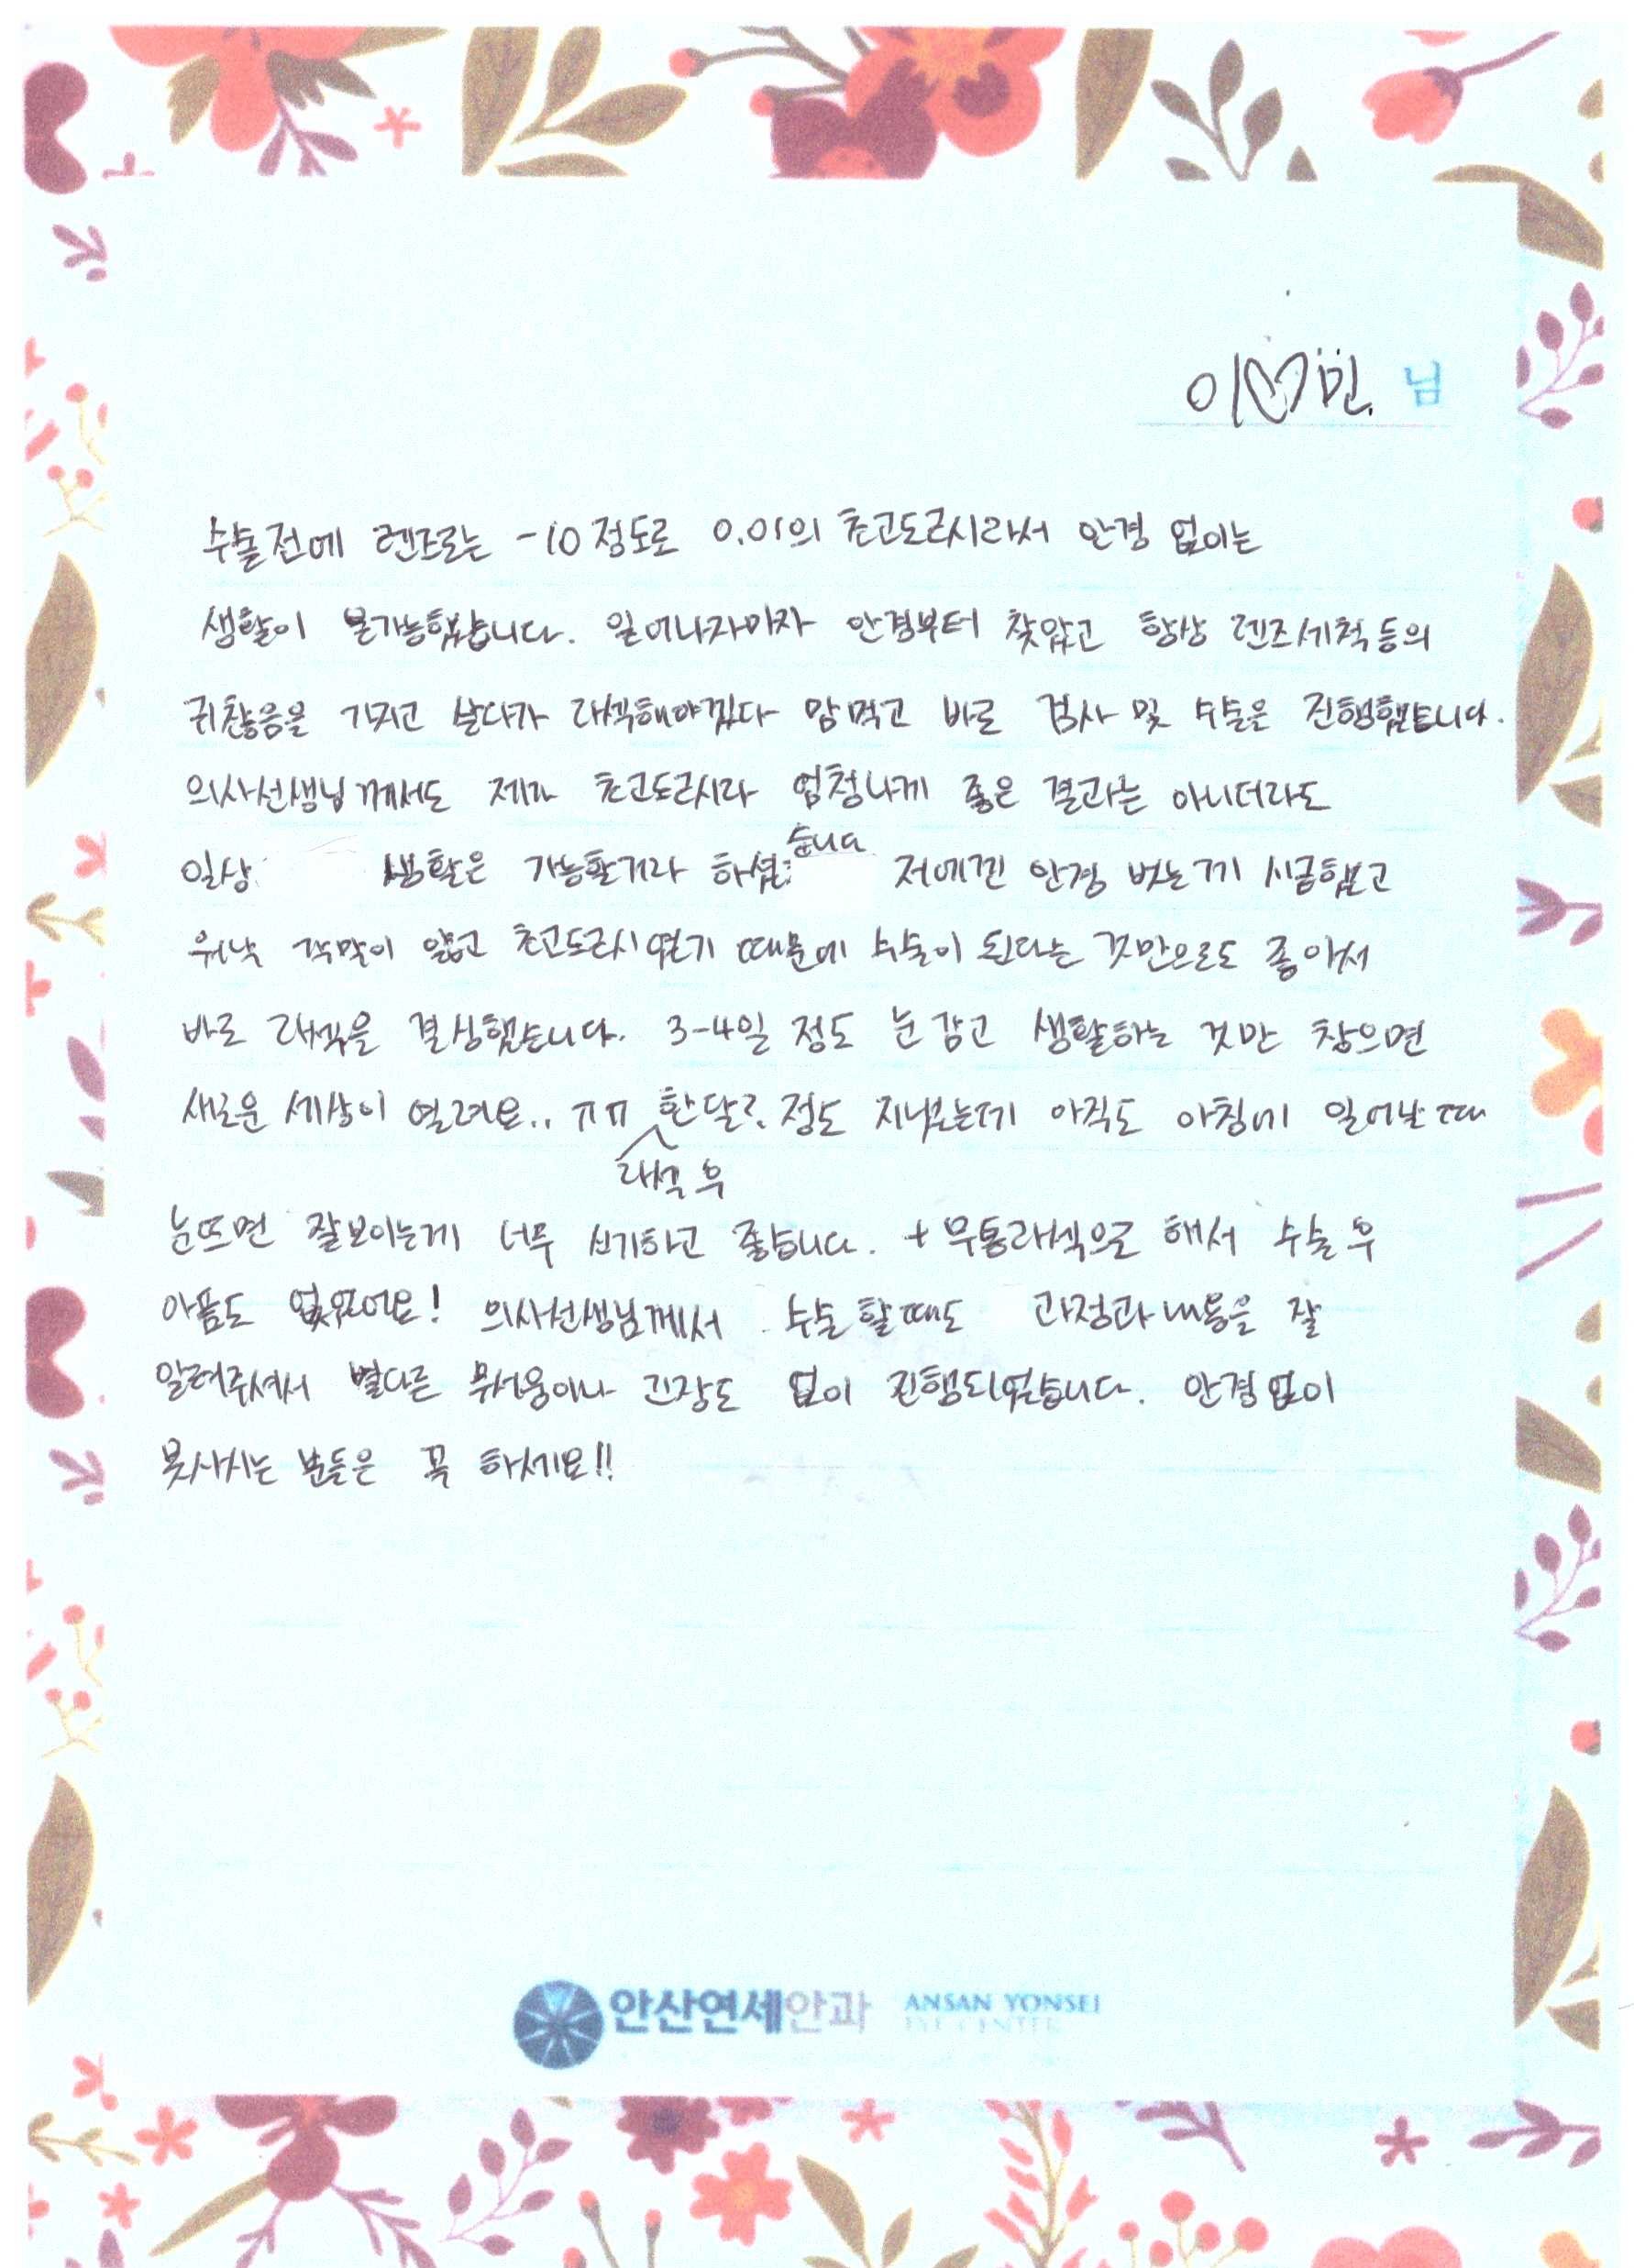 이♡민. 님
수술전에 렌즈로는 -10정도로 0.01의 초고도근시라서 안경 없이는
생활이 불가능했습니다. 일어나자마자 안경부터 찾았고 항상 렌즈세척등의
귀찮음을 가지고 살다가 라섹해야겠다 맘먹고 바로 검사 및 수술은 진행했습니다.
의사선생님께서도 제가 초고도근시라 엄청나게 좋은 결과는 아니더라도
일상 생활은 가능할거라 하셨습니다 저에겐 안경 벗는게 시급했고
워낙 각막이 얇고 초고도근시였기 때문에 수술이 된다는 것만으로도 좋아서
바로 라섹을 결심했습니다. 3-4일 정도 눈감고 생활하는 것만 참으면
새로운 세상이 열려요.. ㅠㅠ 라섹 후 한달? 정도 지났는데 아직도 아침에 일어날 때
눈뜨면 잘보이는게 너무 신기하고 좋습니다. + 무통라섹으로 해서 수술 후
아픔도 없었어요! 의사선생님께서 수술할때도 과정과 내용을 잘
알려주셔서 별다른 무서움이나 긴장도 없이 진행되었습니다. 안경없이
못사시는 분들은 꼭 하세요!!
안산연세안과 ANSAN YONSEI
EYE CENTER